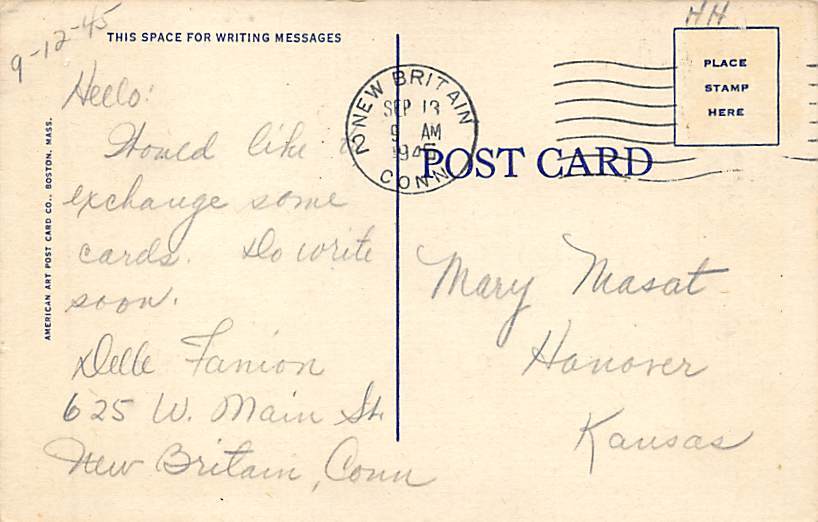 9-12-45
THIS SPACE FOR WRITING MESSAGES
Hello!
Would like to
exchange some
cards. Do write
soon.
Delle Fanion
625 W. Main St.
New Britain, Conn
AMERICAN ART POST CARD CO., BOSTON, MASS.
NEW BRITAIN 2
SEP 13
9 AM
1945
CONN
HH
PLACE
STAMP
HERE
POST CARD
Mary Masat
Hanover
Kansas